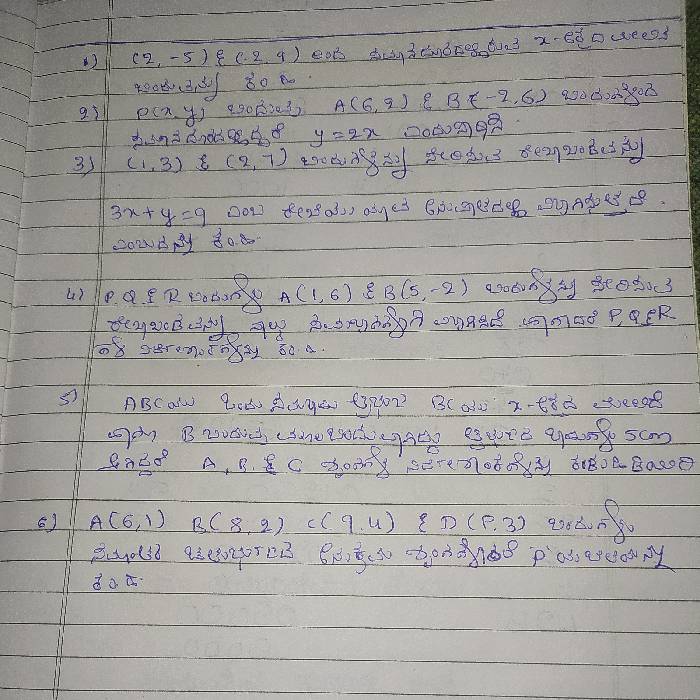 1) (2, -5) & (-2, 9) ಇಂದ ಸಮಾನದೂರದಲ್ಲಿರುವ x-ಅಕ್ಷದ ಮೇಲಿನ
ಬಿಂದುವನ್ನು ಕಂ.ಹಿ.
2) P(x, y) ಬಿಂದುವು A(6, 2) & B(-2, 6) ಬಿಂದುಗಳಿಂದ
ಸಮಾನ ದೂರದಲ್ಲಿದ್ದರೆ y = 2x ಎಂದು ಸಾಧಿಸಿ
3) (1, 3) & (2, 7) ಬಿಂದುಗಳನ್ನು ಸೇರಿಸುವ ರೇಖಾಖಂಡವನ್ನು
3x + y = 9 ಎಂಬ ರೇಖೆಯು ಯಾವ ಅನುಪಾತದಲ್ಲಿ ವಿಭಾಗಿಸುತ್ತದೆ
ಎಂಬುದನ್ನು ಕಂ.ಹಿ.
4) P, Q & R ಬಿಂದುಗಳು A(1, 6) & B(5, -2) ಬಿಂದುಗಳನ್ನು ಸೇರಿಸುವ
ರೇಖಾಖಂಡವನ್ನು ನಾಲ್ಕು ಸಮಭಾಗಗಳಾಗಿ ವಿಭಾಗಿಸಿದೆ ಹಾಗಾದರೆ P, Q & R
ಗಳ ನಿರ್ದೇಶಾಂಕಗಳನ್ನು ಕಂ.ಹಿ.
5) ABC ಯು ಒಂದು ಸಮಬಾಹು ತ್ರಿಭುಜ BC ಯು x-ಅಕ್ಷದ ಮೇಲಿದೆ
ಹಾಗೂ B ಬಿಂದುವು ಮೂಲಬಿಂದುವಾಗಿದ್ದು ತ್ರಿಭುಜದ ಬಾಹುಗಳು 5cm
ಆಗಿದ್ದರೆ A, B & C ಶೃಂಗಗಳ ನಿರ್ದೇಶಾಂಕಗಳನ್ನು ಕಂಡುಹಿಡಿಯಿರಿ
6) A(6, 1) B(8, 2) C(9, 4) & D(P, 3) ಬಿಂದುಗಳು
ಸಮಾಂತರ ಚತುರ್ಭುಜದ ಅನುಕ್ರಮ ಶೃಂಗಗಳಾದರೆ P ಯ ಬೆಲೆಯನ್ನು
ಕಂ.ಹಿ.